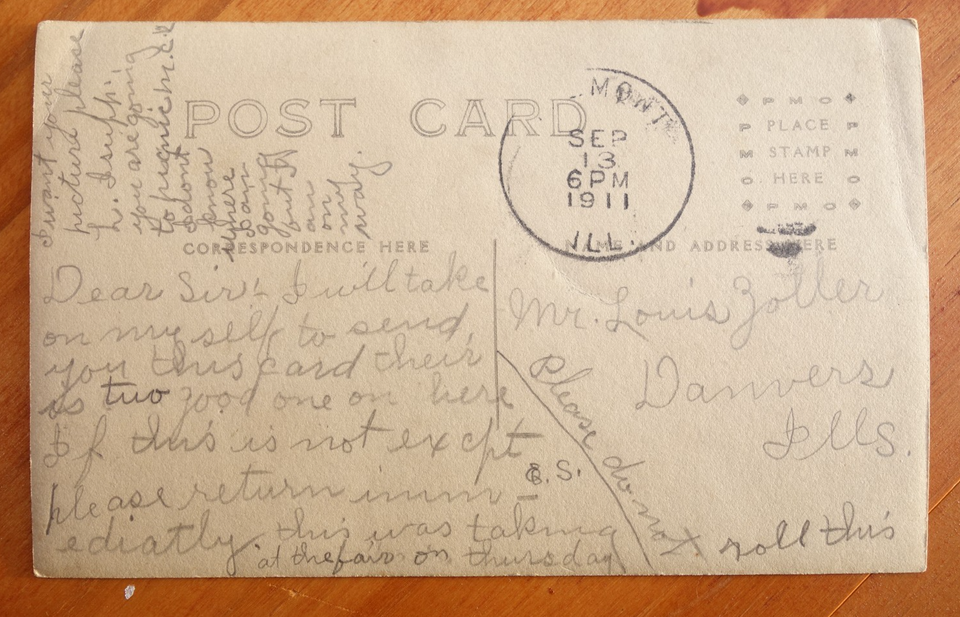 POST CARD
CORRESPONDENCE HERE
NAME AND ADDRESS HERE
P M O
P PLACE P
M STAMP M
O HERE O
P M O
MONT
SEP
13
6 PM
1911
ILL.
I want your
picture please
L. I supp.
you are going
to
I dont
know
where
I am
going
but I
am
on
my
way.
Dear Sir:- I will take
on my self to send
you this card their
is two good one on here
If this is not exept
please return imm-
ediatly. this was taking
at the fair on thursday
E.S.
Mr. Louis Zoller
Danvers
Ills.
Please do not roll this